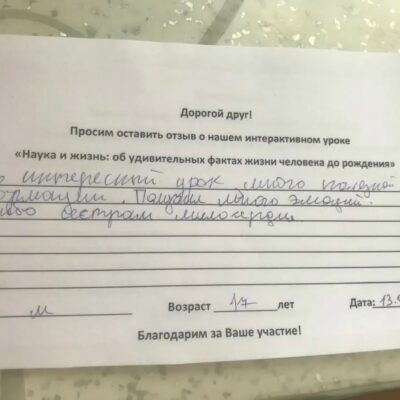 Дорогой друг!
Просим оставить отзыв о нашем интерактивном уроке
«Наука и жизнь: об удивительных фактах жизни человека до рождения»
интересный урок много полезной
Получил много эмоций.
сестрам милосердия
м Возраст 17 лет Дата: 13.
Благодарим за Ваше участие!